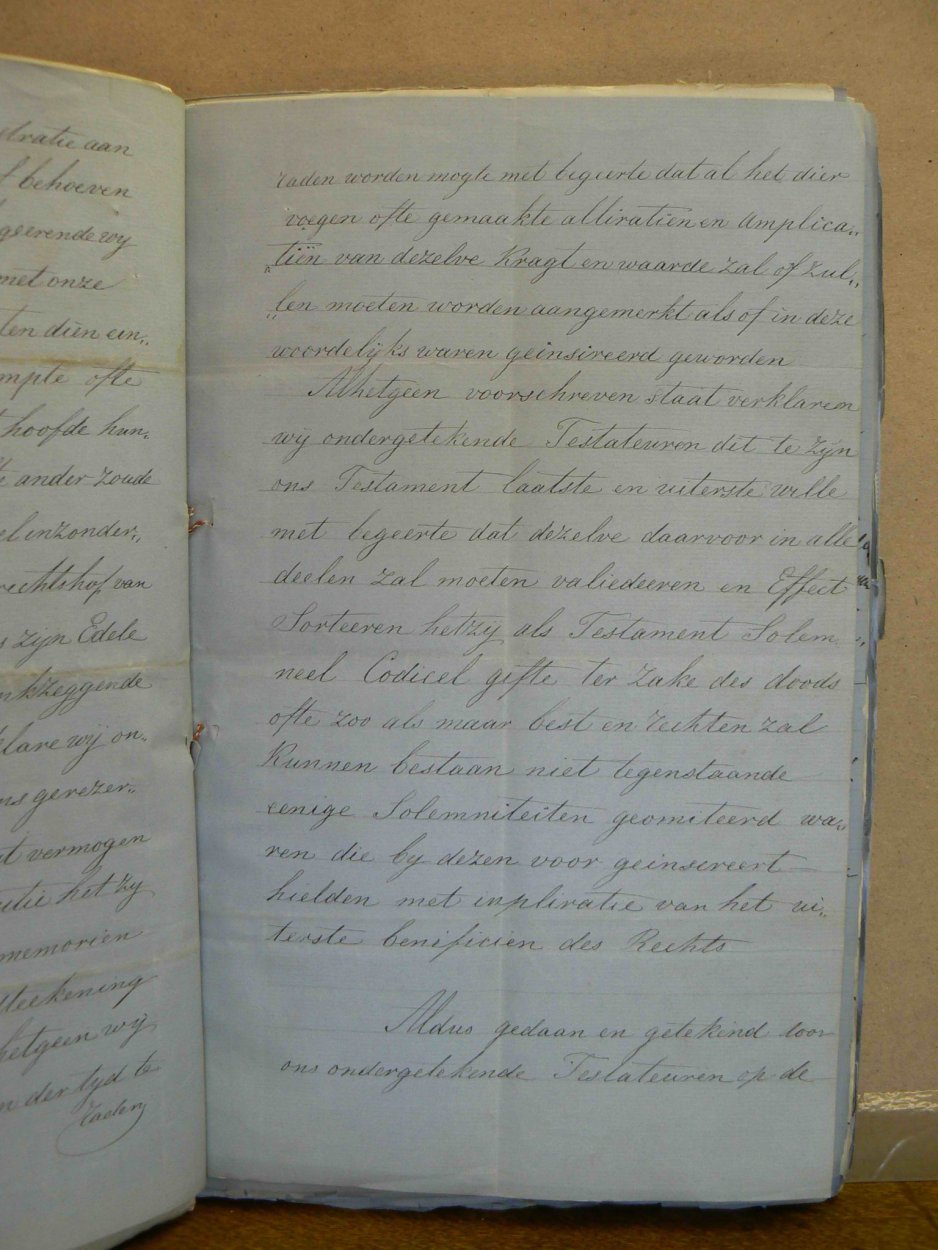 stratie aan
behoeven
geerende wy
met onze
ten dien ein„
mpte ofte
hoofde hun„
ander zoude
el inzonder„
rechtshof van
s zijn Edele
nkzeggende
klare wij on„
ns gerezer„
at vermogen
utie het zy
memorien
teekening
hetgeen wij
n der tyd te
raden
raden worden mogte met begeerte dat al het dier
voegen ofte gemaakte altiratiën en Amplica„
„tiën van dezelve Kragt en waarde zal of zul„
„len moeten worden aangemerkt als of in deze
woordelijks waren geinsireerd geworden
Alhetgeen voorschreven staat verklaren
wij ondergetekende Testateuren dit te zijn
ons Testament laatste en uiterste wille
met begeerte dat dezelve daarvoor in alle
deelen zal moeten valiedeeren en Effect
Sorteeren hetzij als Testament Solem
neel Codicel gifte ter zake des doods
ofte zoo als maar best en rechten zal
Kunnen bestaan niet tegenstaande
eenige Solemniteiten geomiteerd wa„
ren die by dezen voor geinsereert
hielden met inpliratie van het ui„
terste benificien des Rechts
Aldus gedaan en getekend door
ons ondergetekende Testateuren op de